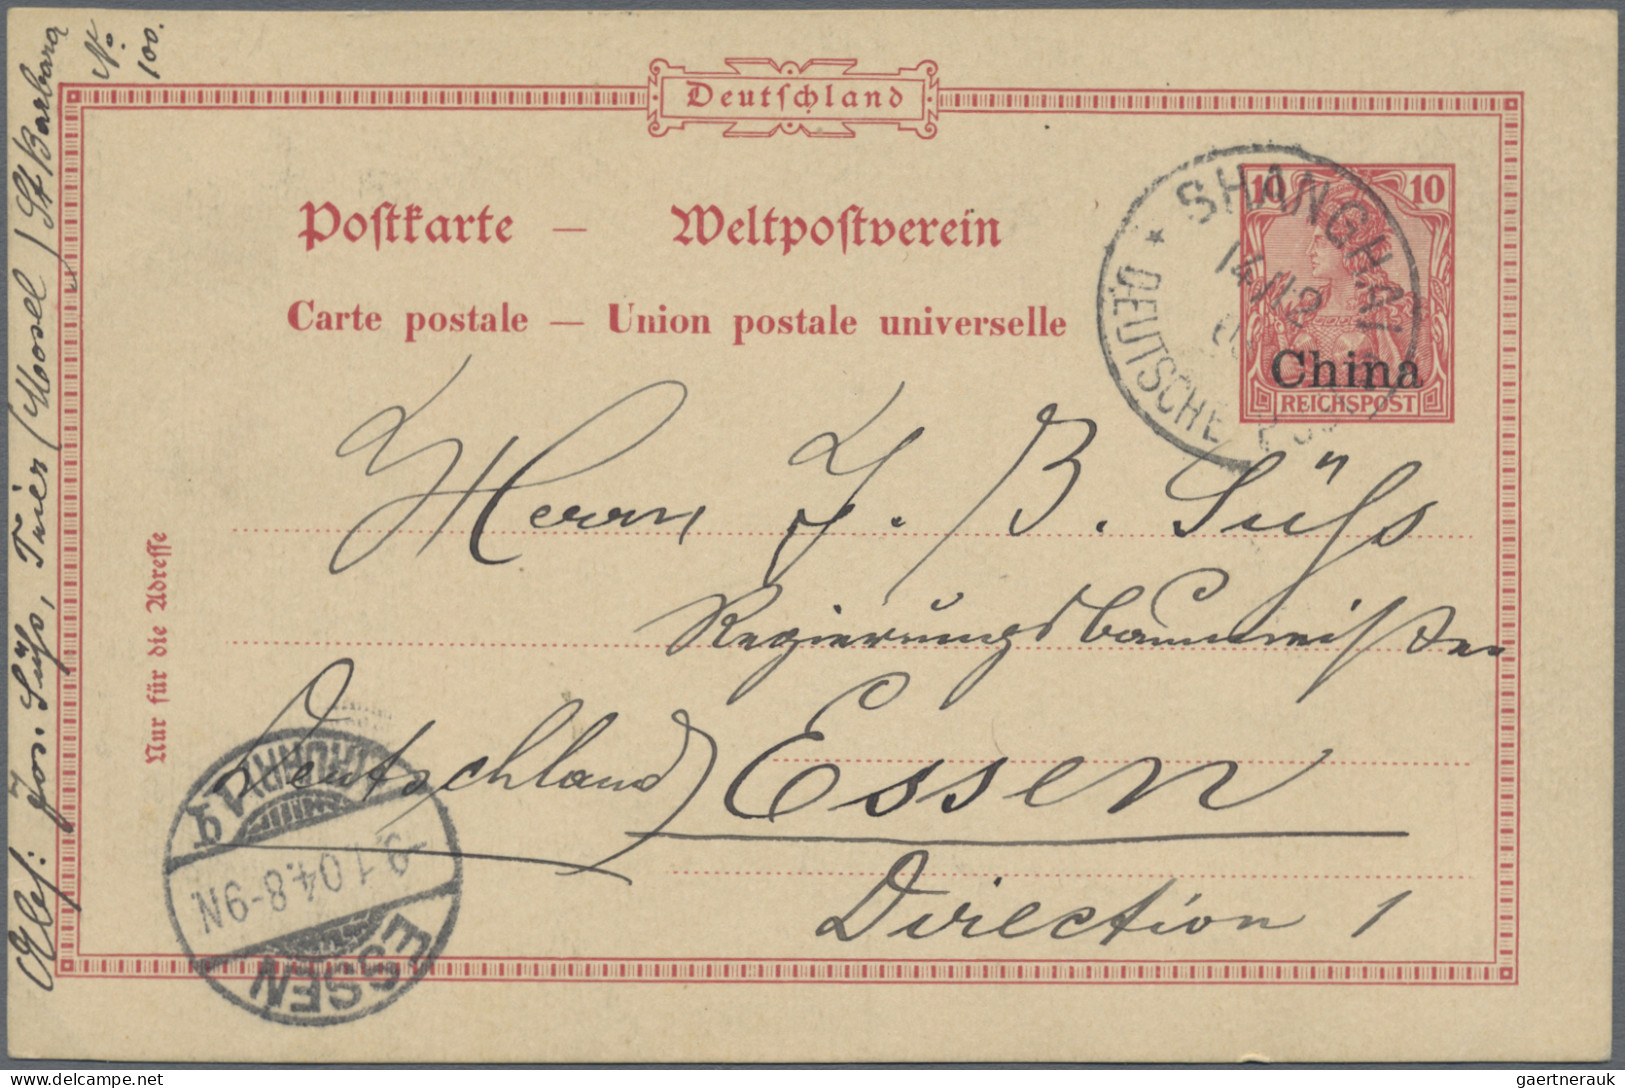 Deutschland
Postkarte — Weltpostverein
Carte postale — Union postale universelle
10 10
China
REICHSPOST
SHANGHAI
14/12
DEUTSCHE POST
Herrn J. B. Süß
Regierungsbaumeister
Essen
Deutschland)
Direction 1
Nur für die Adresse
Abs: Jos. Süß, Trier (Mosel) St Barbara
No.
100.
ESSEN
9.1.04.8-9N.
(RUHR) 1
gaertnerauk